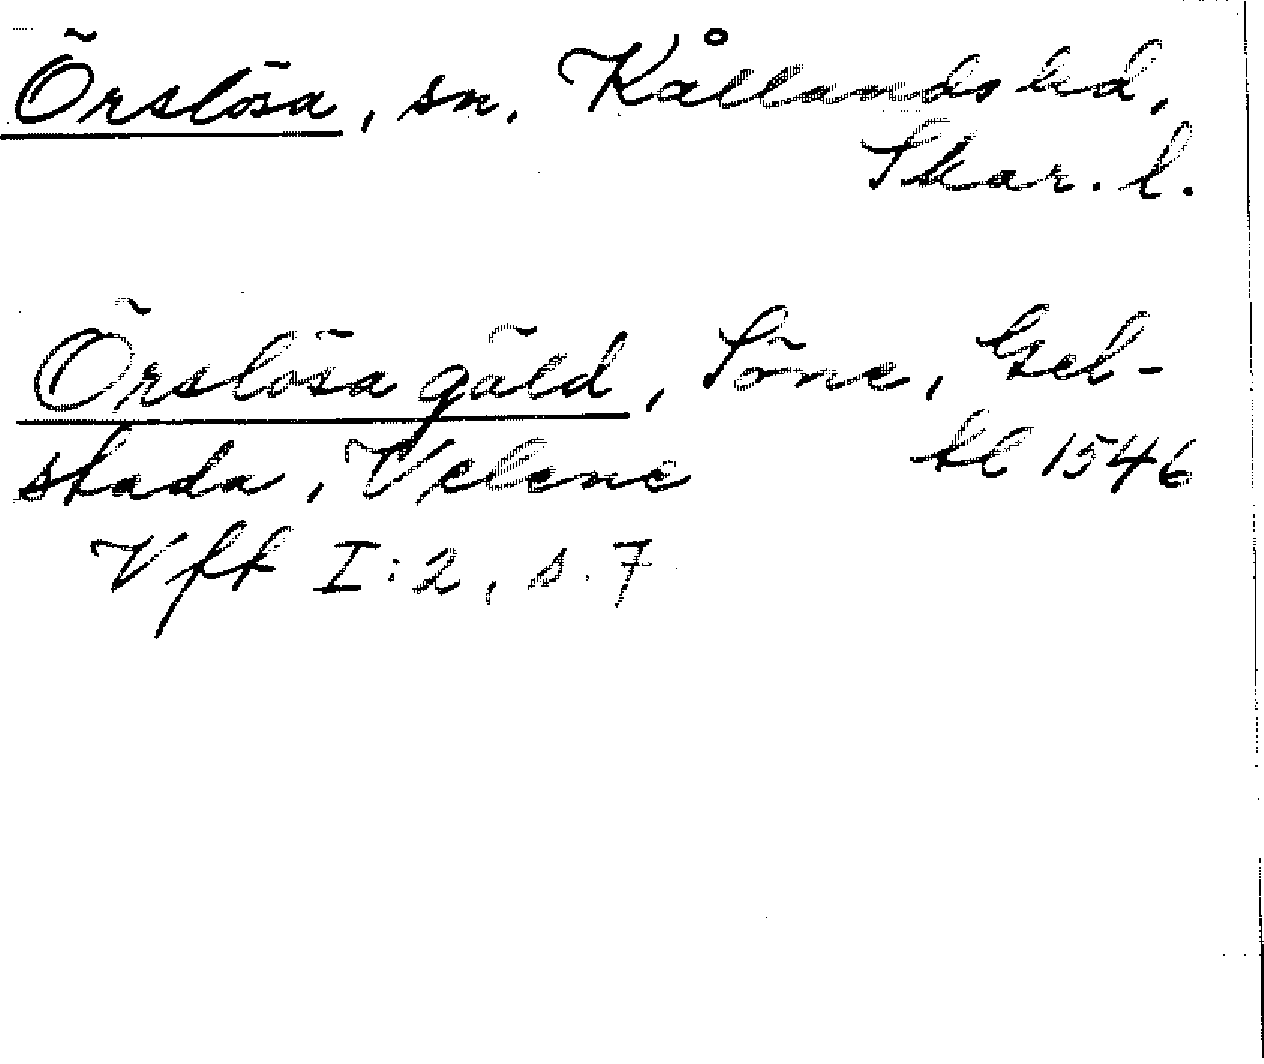 Örslösa, sn. Kållands hd,
Skar. l.
Örslösa gäld, Söne, Gel-
stada, Velene kl 1546
Vff I:2, s. 7